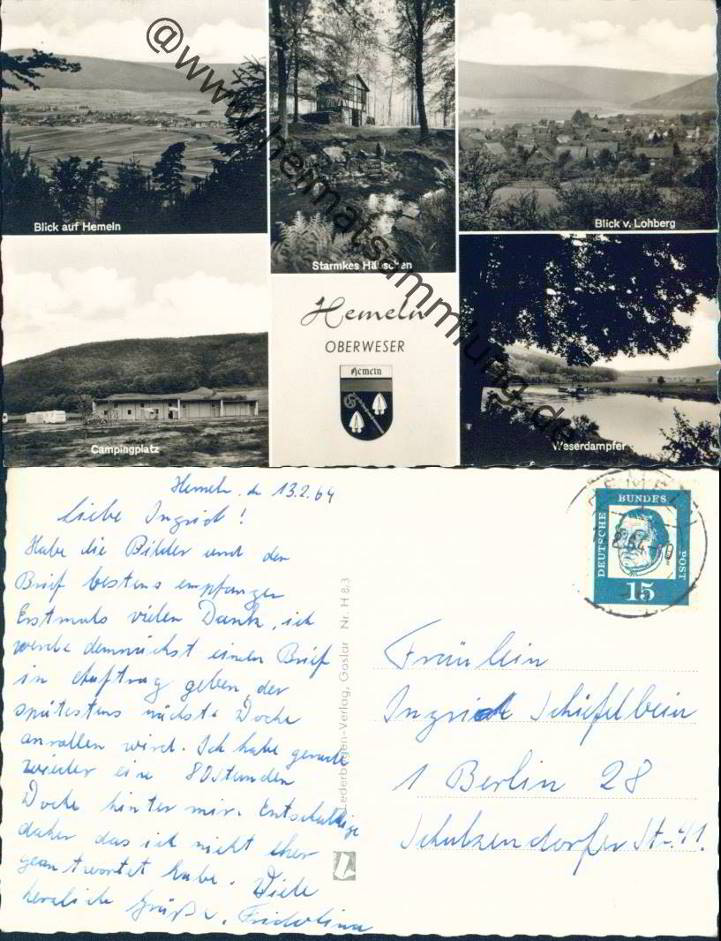 @www.heimatsammlung.de
Blick auf Hemeln
Starmkes Häuschen
Blick v. Lohberg
Campingplatz
Hemeln
OBERWESER
Hemeln
Weserdampfer
Hemeln, dn 13.2.64
Liebe Ingrid!
Habe die Bilder und den
Brief bestens empfangen
Erstmals vielen Dank, ich
werde demnächst einen Brief
in Auftrag geben, der
spätestens nächste Woche
anrollen wird. Ich habe gerade
wieder eine 80 stunden
Woche hinter mir. Entschuldige
daher das ich nicht eher
geantwortet habe. Viele
herzliche Grüße v.
Lederbogen-Verlag, Goslar Nr. H 83
DEUTSCHE
BUNDES
POST
15
Fräulein
Ingrid Schiefelbein
1 Berlin 28
Schulzendorfer Str.